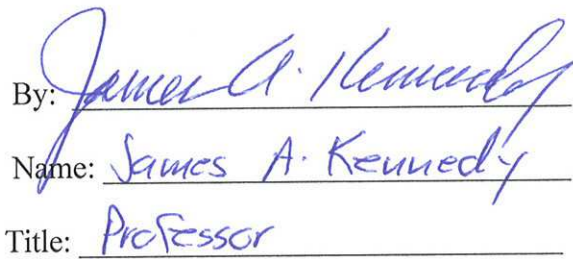 By: James A. Kennedy
Name: James A. Kennedy
Title: Professor